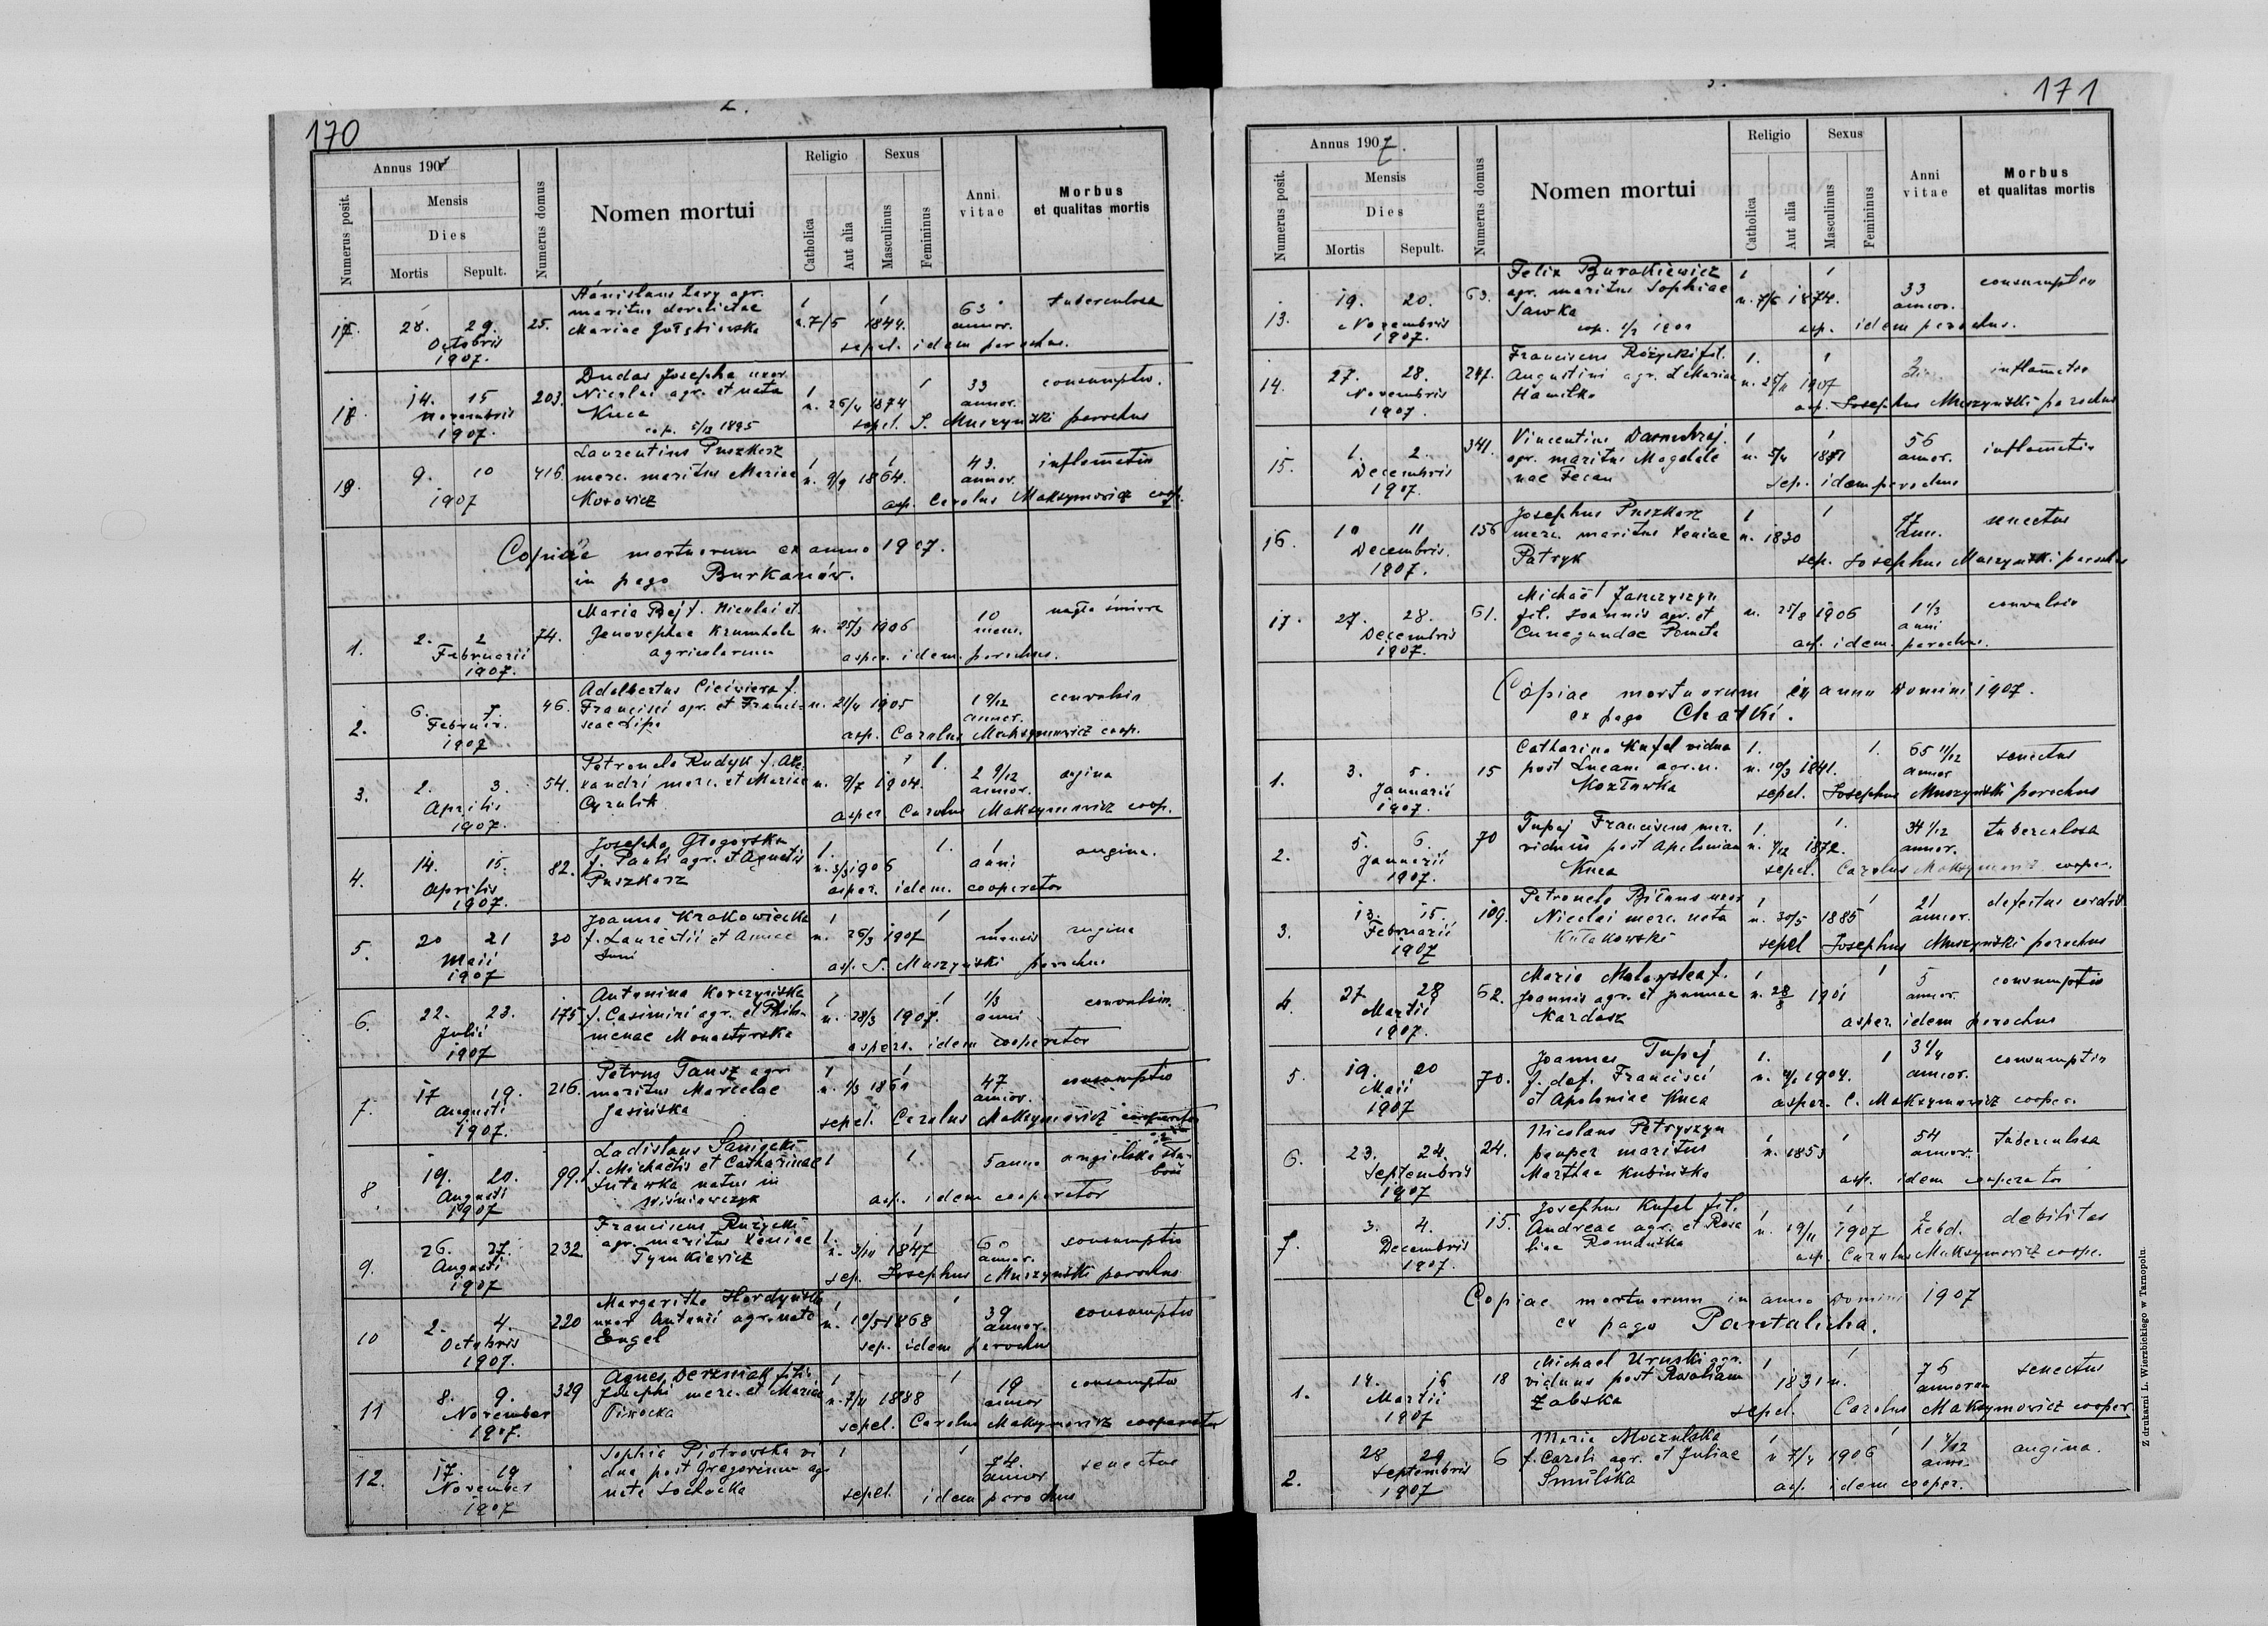 170
2.
Annus 1907
Numerus posit.
Mensis
Dies
Mortis
Sepult.
Numerus domus
Nomen mortui
Religio
Catholica
Aut alia
Sexus
Masculinus
Femininus
Anni vitae
Morbus
et qualitas mortis
17. 28. 29. 25. Stanislaus Lary agr. 1 1 63 tuberculosa
Octobris maritus derelictae n. 7/5 1844. annor.
1907. Mariae Gołębiowska sepel. idem parochus.
18. 14. 15 203. Dudas Josepha uxor 1 1 33 consumptio.
Novembris Nicolai agr. et nata n. 26/4 1874 annor.
1907. Knea sepel. J. Muszyński parochus
cop. 5/12 1895
19. 9. 10 416. Laurentius Puszkarz 1 1 43. inflamatio
1907 merc. maritus Mariae n. 9/9 1864. annor.
Kosowicz asp. Carolus Maksymowicz coop.
Copiae mortuorum ex anno 1907.
in pago Burkanów.
1. 2. 2 74. Maria Bej f. Nicolai et 10 nagła śmierć
Februarii Genovephae Krumholz n. 25/3 1906 mens.
1907. agricolarum asper. idem parochus.
2. 6. 7. 46. Adalbertus Ciciwiera f. 1 9/12 convulsio
Februar. Francisci agr. et Francis n. 21/4 1905 annor.
1907 scae Lipa asp. Carolus Maksymowicz coop.
3. 2. 3. 54. Petronela Rudyk f. Ale 1 2 9/12 angina
Aprilis xandri merc. et Mariae n. 9/7 1904. annor.
1907. Cyrulik asper Carolus Maksymowicz coop.
4. 14. 15. 82. Josepha Głogowska 1. 1. 1 angina.
Aprilis f. Pauli agr. et Agnetis n. 3/3 1906 anni
1907. Puszkarz asper. idem. cooperator
5. 20 21 30 Joanna Krakowiecka 1 1 1 angina
Maii f. Laurentii et Annae n. 26/3 1907 mensis
1907 asp. J. Muszyński parochus
6. 22. 23. 175 Antonina Korczyńska 1 1 1/3 convulsio.
Julii f. Casimiri agr. et Philo n. 28/3 1907. anni
1907 menae Monastyrska aspers. idem cooperator
7. 17 19. 216. Petrus Tansz agr. 1 1 47 consumptio
Augusti maritus Marcelae annor.
1907. Jasińska sepel. Carolus Maksymowicz cooperator
8 19. 20. 99. Ladislaus Sanięcki 1 1 5 anno angielska
Augusti f. Michaelis et Catharinae
1907 natus in Wiśniowczyk asp. idem cooperator
9. 26. 27. 232 Franciscus Rużycki 1. 1 consumptio
Augusti agr. maritus Xeniae n. 3/10 1847 annor.
1907 Tymkiewicz sep. Josephus Muszyński parochus
10 2. 4. 220 Margaritha Hordyńska 1 1 39 consumptio
Octobris uxor Antonii agr. nata n. 10/5 1868 annor.
1907. Engel sep. idem parochus
11 8. 9. 329 Agnes Derzniak filia 1 1 19 consumptio
November Josephi merc. et Mariae n. 7/11 1888 annor
1907. Piwocka sepel. Carolus Maksymowicz cooperator
12. 17. 19 Sophia Piotrowska vi 1 1 74. senectus
November dua post Gregorium agr annor
1907 nata Sochacka sepel. idem parochus
171
3.
Annus 1907.
Numerus posit.
Mensis
Dies
Mortis
Sepult.
Numerus domus
Nomen mortui
Religio
Catholica
Aut alia
Sexus
Masculinus
Femininus
Anni vitae
Morbus
et qualitas mortis
13. 19. 20. 63. Felix Burakiewicz 1 1 33 consumptio
Novembris agr. maritus Sophiae n. 7/6 1874. annor.
1907. Sawka asp. idem parochus.
14. 27. 28. 247. Franciscus Różycki fil. 1. 1 inflamatio
Novembris Augustini agr. & Mariae n. 25/11 1907
1907. Hamilko asp. Josephus Muszyński parochus
15. 1. 2. 341. Vincentius 1 1 56 inflamatio
Decembris agr. maritus Magdale n. 5/4 annor.
1907. nae Fecan sep. idem parochus
16. 10 11 156 Josephus Puszkarz 1 1 77 senectus
Decembris. merc. maritus Xeniae n. 1830 ann.
1907. Patryk sep. Josephus Muszyński parochus
17. 27. 28. 61. Michaël Janczyszyn 1 1/3 convulsio
Decembris fil. Joannis agr. et n. 25/8 1906 anni
1907. Cunegundae Pomata asp. idem. parochus.
Copiae mortuorum ex anno Domini 1907.
ex pago Chatki.
1. 3. 5. 15 Catharina Kufel vidua 1. 1. 65 11/12 senectus
Januarii post Lucam agr. n. n. 10/3 1841. annor
1907. Kozłowka sepel. Josephus Muszyński parochus
2. 5. 6. 70 Tupej Franciscus mer. 1. 1. 34 1/12 tuberculosa
Januarii viduus post Apoloniam n. 4/12 1872. annor.
1907. Knea sepel. Carolus Maksymowicz cooper.
3. 13. 15. 109. Petronela Biłous uxor 1 1 21 defectus cordis
Februarii Nicolai merc. nata n. 30/5 1885 annor.
1907 Kułakowski sepel Josephus Muszyński parochus
4. 27 28 62. Maria Małayska f. 1 1 5 consumptio
Martii Joannis agr. et Joannae n. 28/8 1901 annor.
1907. Kardasz asper. idem parochus
5. 19. 20 70. Joannes Tupej 1. 1 3 1/4 consumptio
Maii f. def. Francisci annor.
1907 et Apoloniae Knea asper. C. Maksymowicz cooper.
6. 23. 24. 24. Nicolaus Petryszyn 1 1 54 tuberculosa
Septembris pauper maritus n. 1853 annor.
1907 Marthae Kubińska asp. idem cooperator
7. 3. 4. 15. Josephus Kufel fil. 1 1 2 debilitas
Decembris Andreae agr. et Rosa n. 19/11 1907 hebd.
1907. liae Romańska asp. Carolus Maksymowicz coope.
Copiae mortuorum in anno Domini 1907
ex pago Pantalicha.
1. 14. 16 18 Michael Uruski agr. 1 1 75 senectus
Martii viduus post Rosaliam 1831 n. annorum
1907 Zabska sepel. Carolus Maksymowicz cooper.
2. 28 29 6 Maria Moczulska 1 1 angina.
Septembris f. Caroli agr. et Juliae n 7/4 1906
1907 Smulska asp. idem cooper.
Z drukarni L. Wierzbickiego w Tarnopolu.